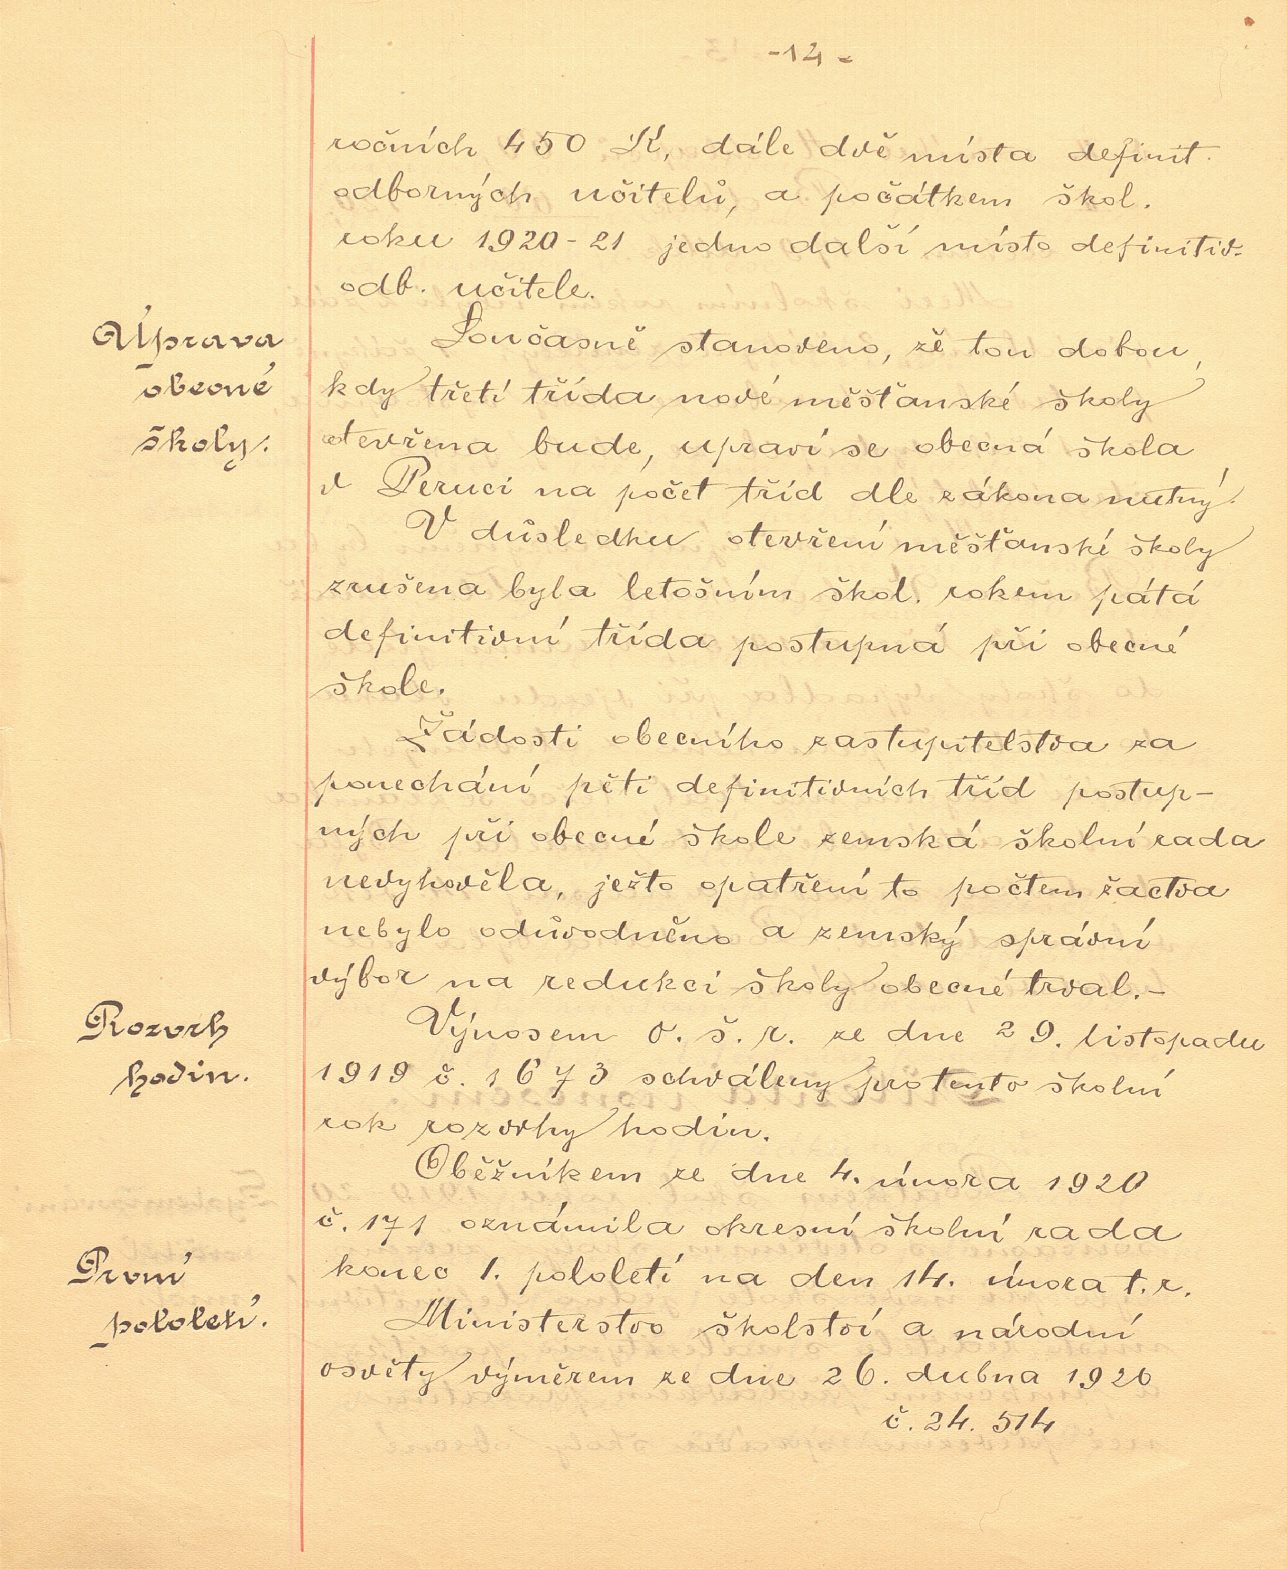 -14-
ročních 450 K, dále dvě místa definit.
odborných učitelů, a počátkem škol.
roku 1920-21 jedno další místo definitiv.
odb. učitele.
Úprava
obecné
školy.
Současně stanoveno, že tou dobou,
kdy třetí třída nové měšťanské školy
otevřena bude, upraví se obecná škola
v Peruci na počet tříd dle zákona nutný.
V důsledku otevření měšťanské školy
zrušena byla letošním škol. rokem pátá
definitivní třída postupná při obecné
škole.
Žádosti obecního zastupitelstva za
ponechání pěti definitivních tříd postup-
ných při obecné škole zemská školní rada
nevyhověla, ježto opatření to počtem žactva
nebylo odůvodněno a zemský správní
výbor na redukci školy obecné trval.-
Rozvrh
hodin.
Výnosem o. š. r. ze dne 29. listopadu
1919 č. 1673 schváleny pro tento školní
rok rozvrhy hodin.
Oběžníkem ze dne 4. února 1920
č. 171 oznámila okresní školní rada
První
pololetí.
konec 1. pololetí na den 14. února t. r.
Ministerstvo školství a národní
osvěty výměrem ze dne 26. dubna 1920
č. 24. 514